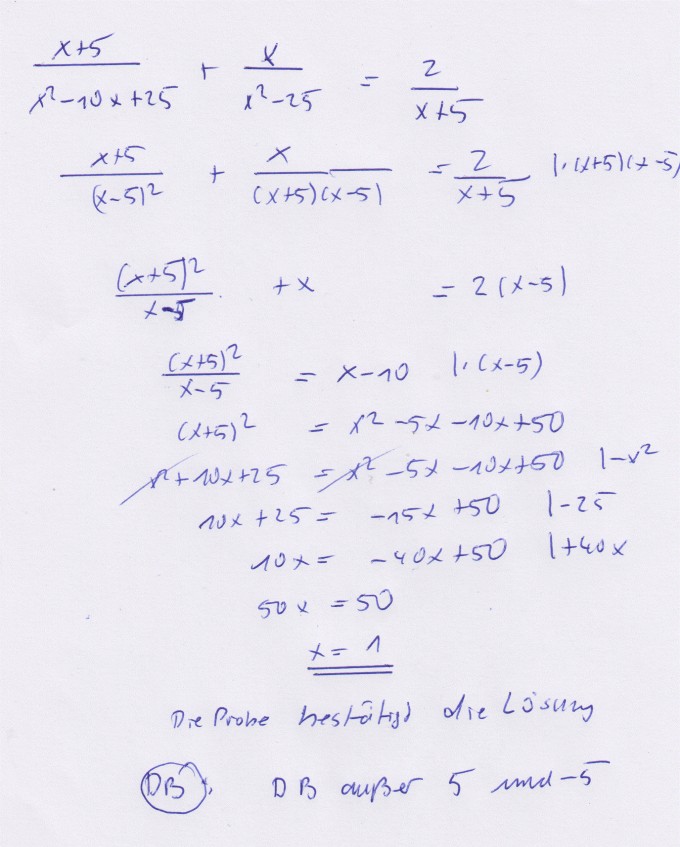 x+5 / x²-10x+25 + x / x²-25 = 2 / x+5
x+5 / (x-5)² + x / (x+5)(x-5) = 2 / x+5 |·(x+5)(x-5)
(x+5)² / x-5 + x = 2(x-5)
(x+5)² / x-5 = x-10 |·(x-5)
(x+5)² = x²-5x-10x+50
x²+10x+25 = x²-5x-10x+50 |-x²
10x+25 = -15x+50 |-25
10x = -40x+50 |+40x
50x = 50
x = 1
Die Probe bestätigt die Lösung
DB: DB außer 5 und -5